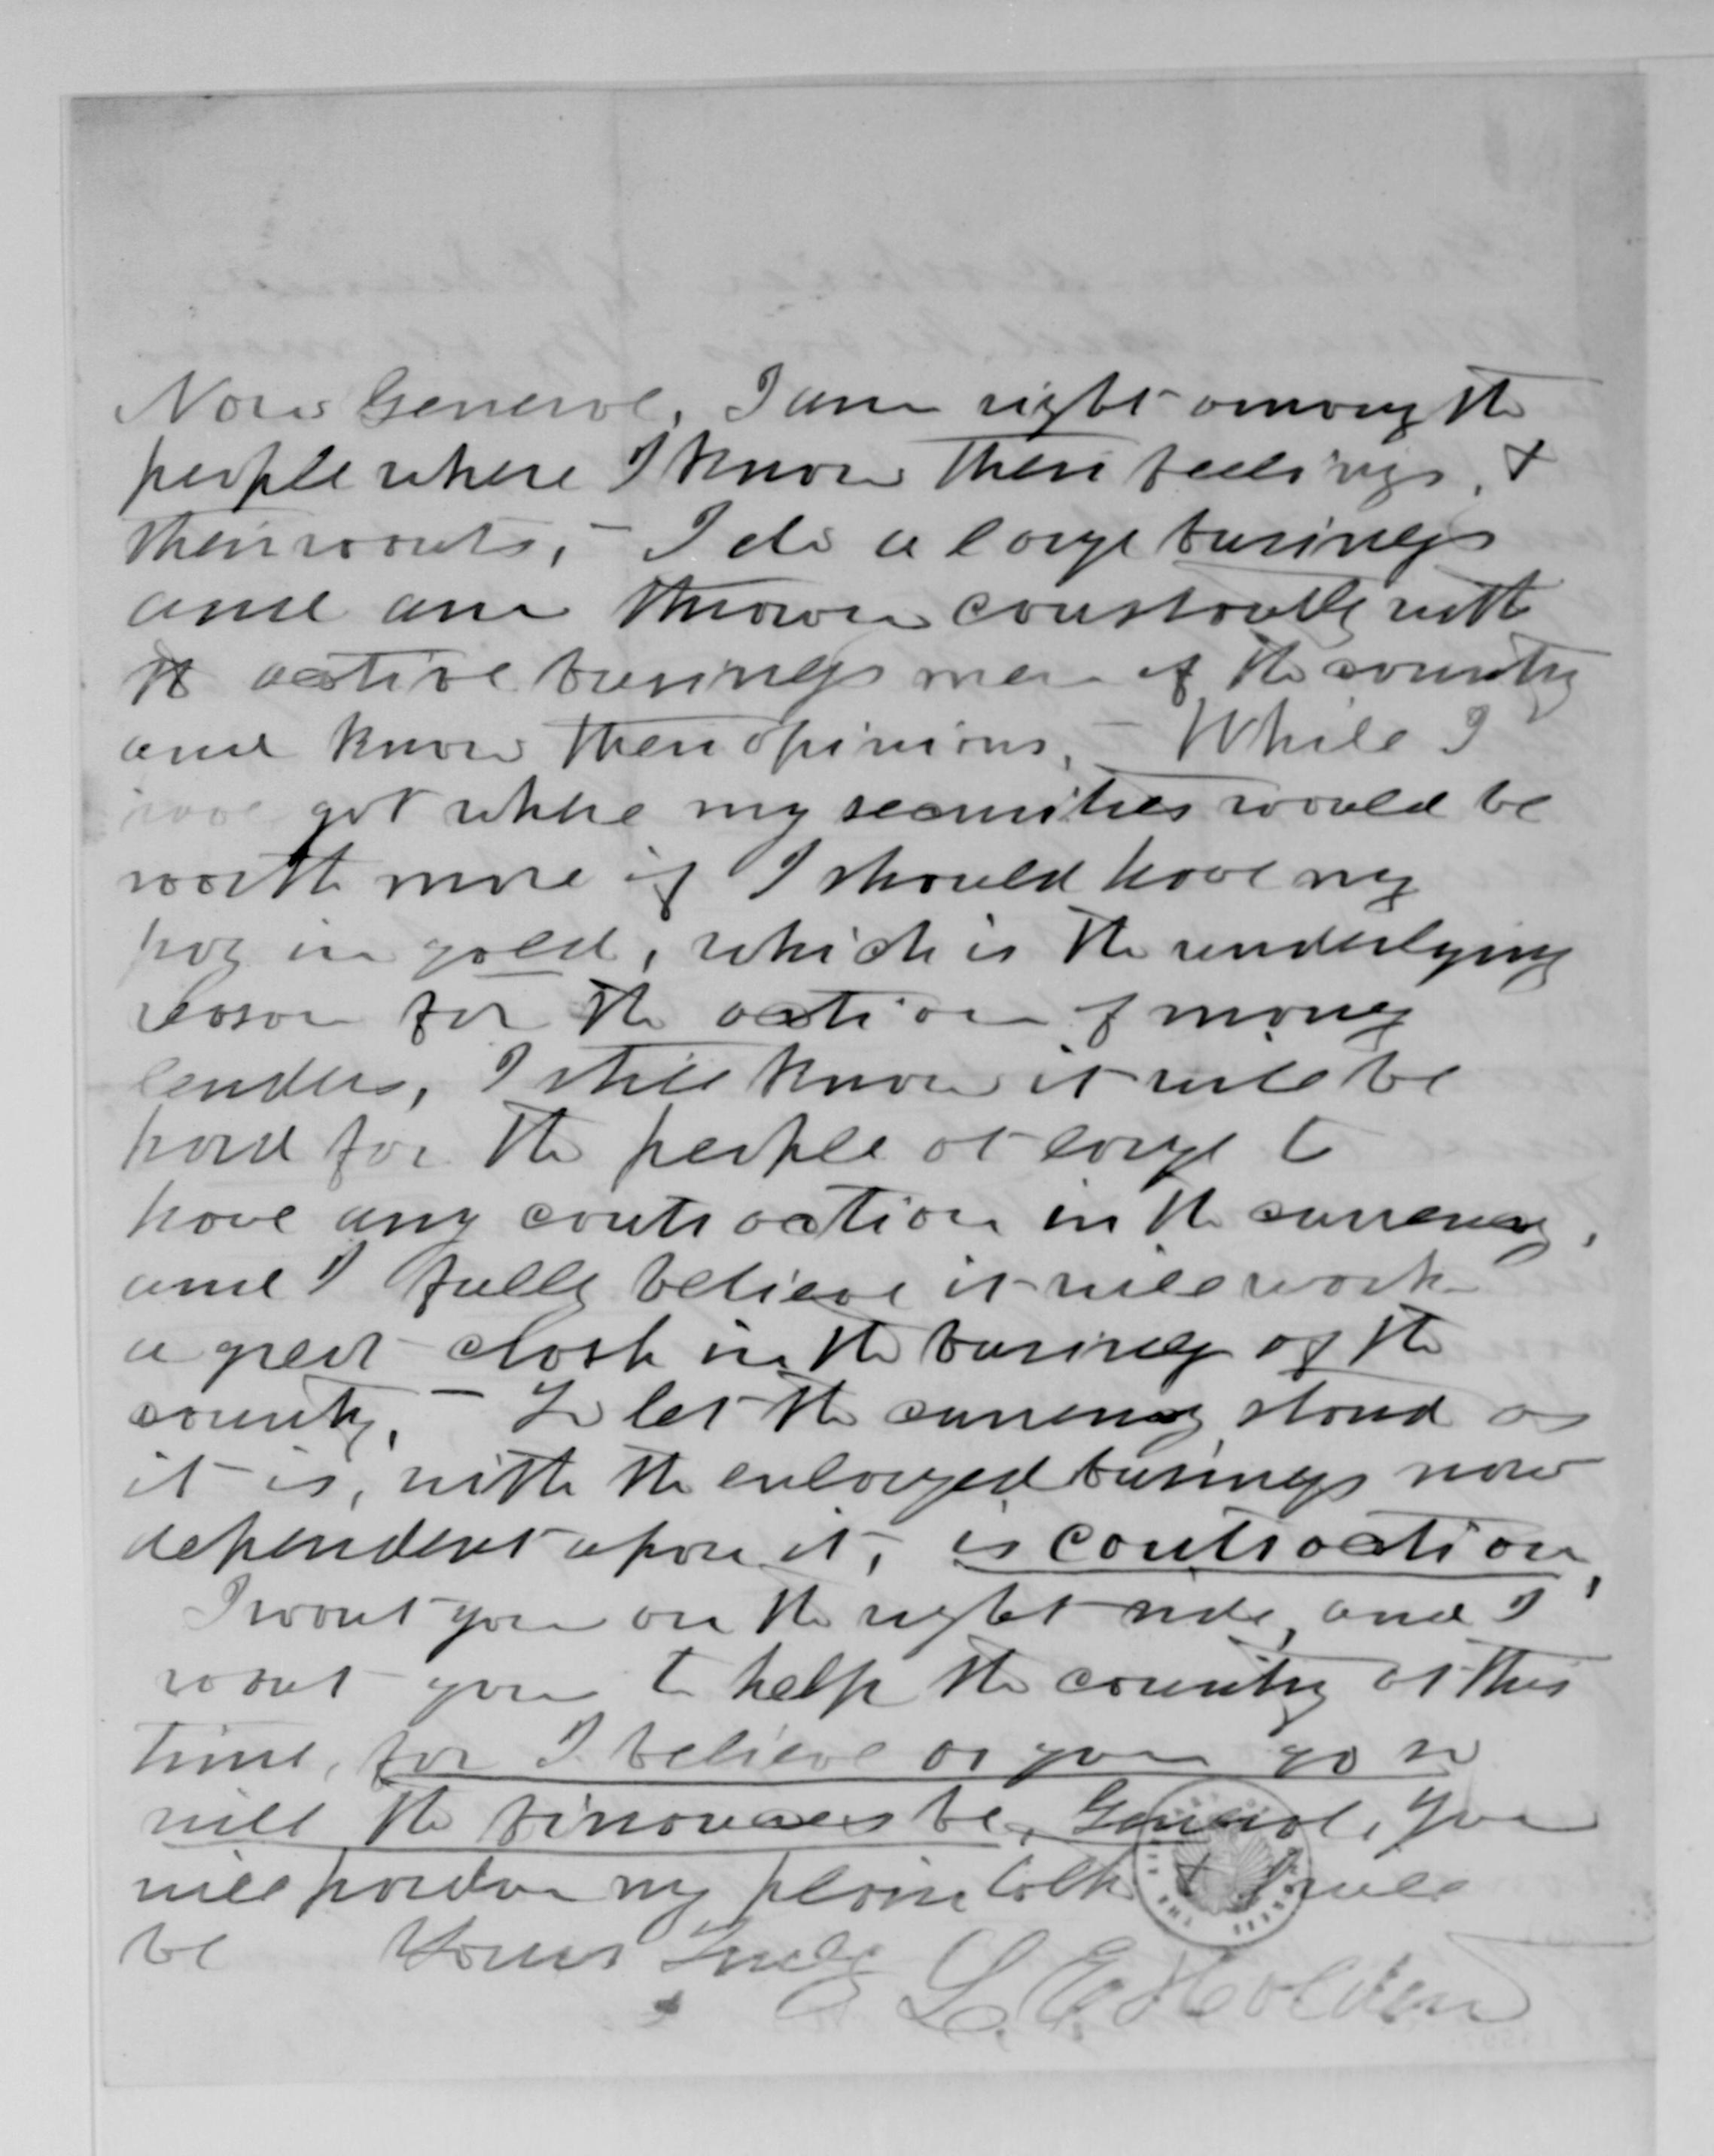 Now General, I am right among the
people where I know their feelings, &
their wants, - I do a large business
and am thrown constantly with
the active business men of the country
and know their opinions, - While I
have got where my securities would be
worth more if I should have my
pay in gold, which is the underlying
reason for the action of money
lenders, I still know it will be
hard for the people at large to
have any contraction in the currency,
and I fully believe it will work
a great clash in the business of the
country, - To let the currency stand as
it is, with the enlarged business now
dependent upon it, is contraction,
I want you on the right side, and I
want you to help the country at this
time, for I believe as you go so
will the finances be, General, You
will pardon my plain talk & I will
be Yours Truly
L. E. Holden